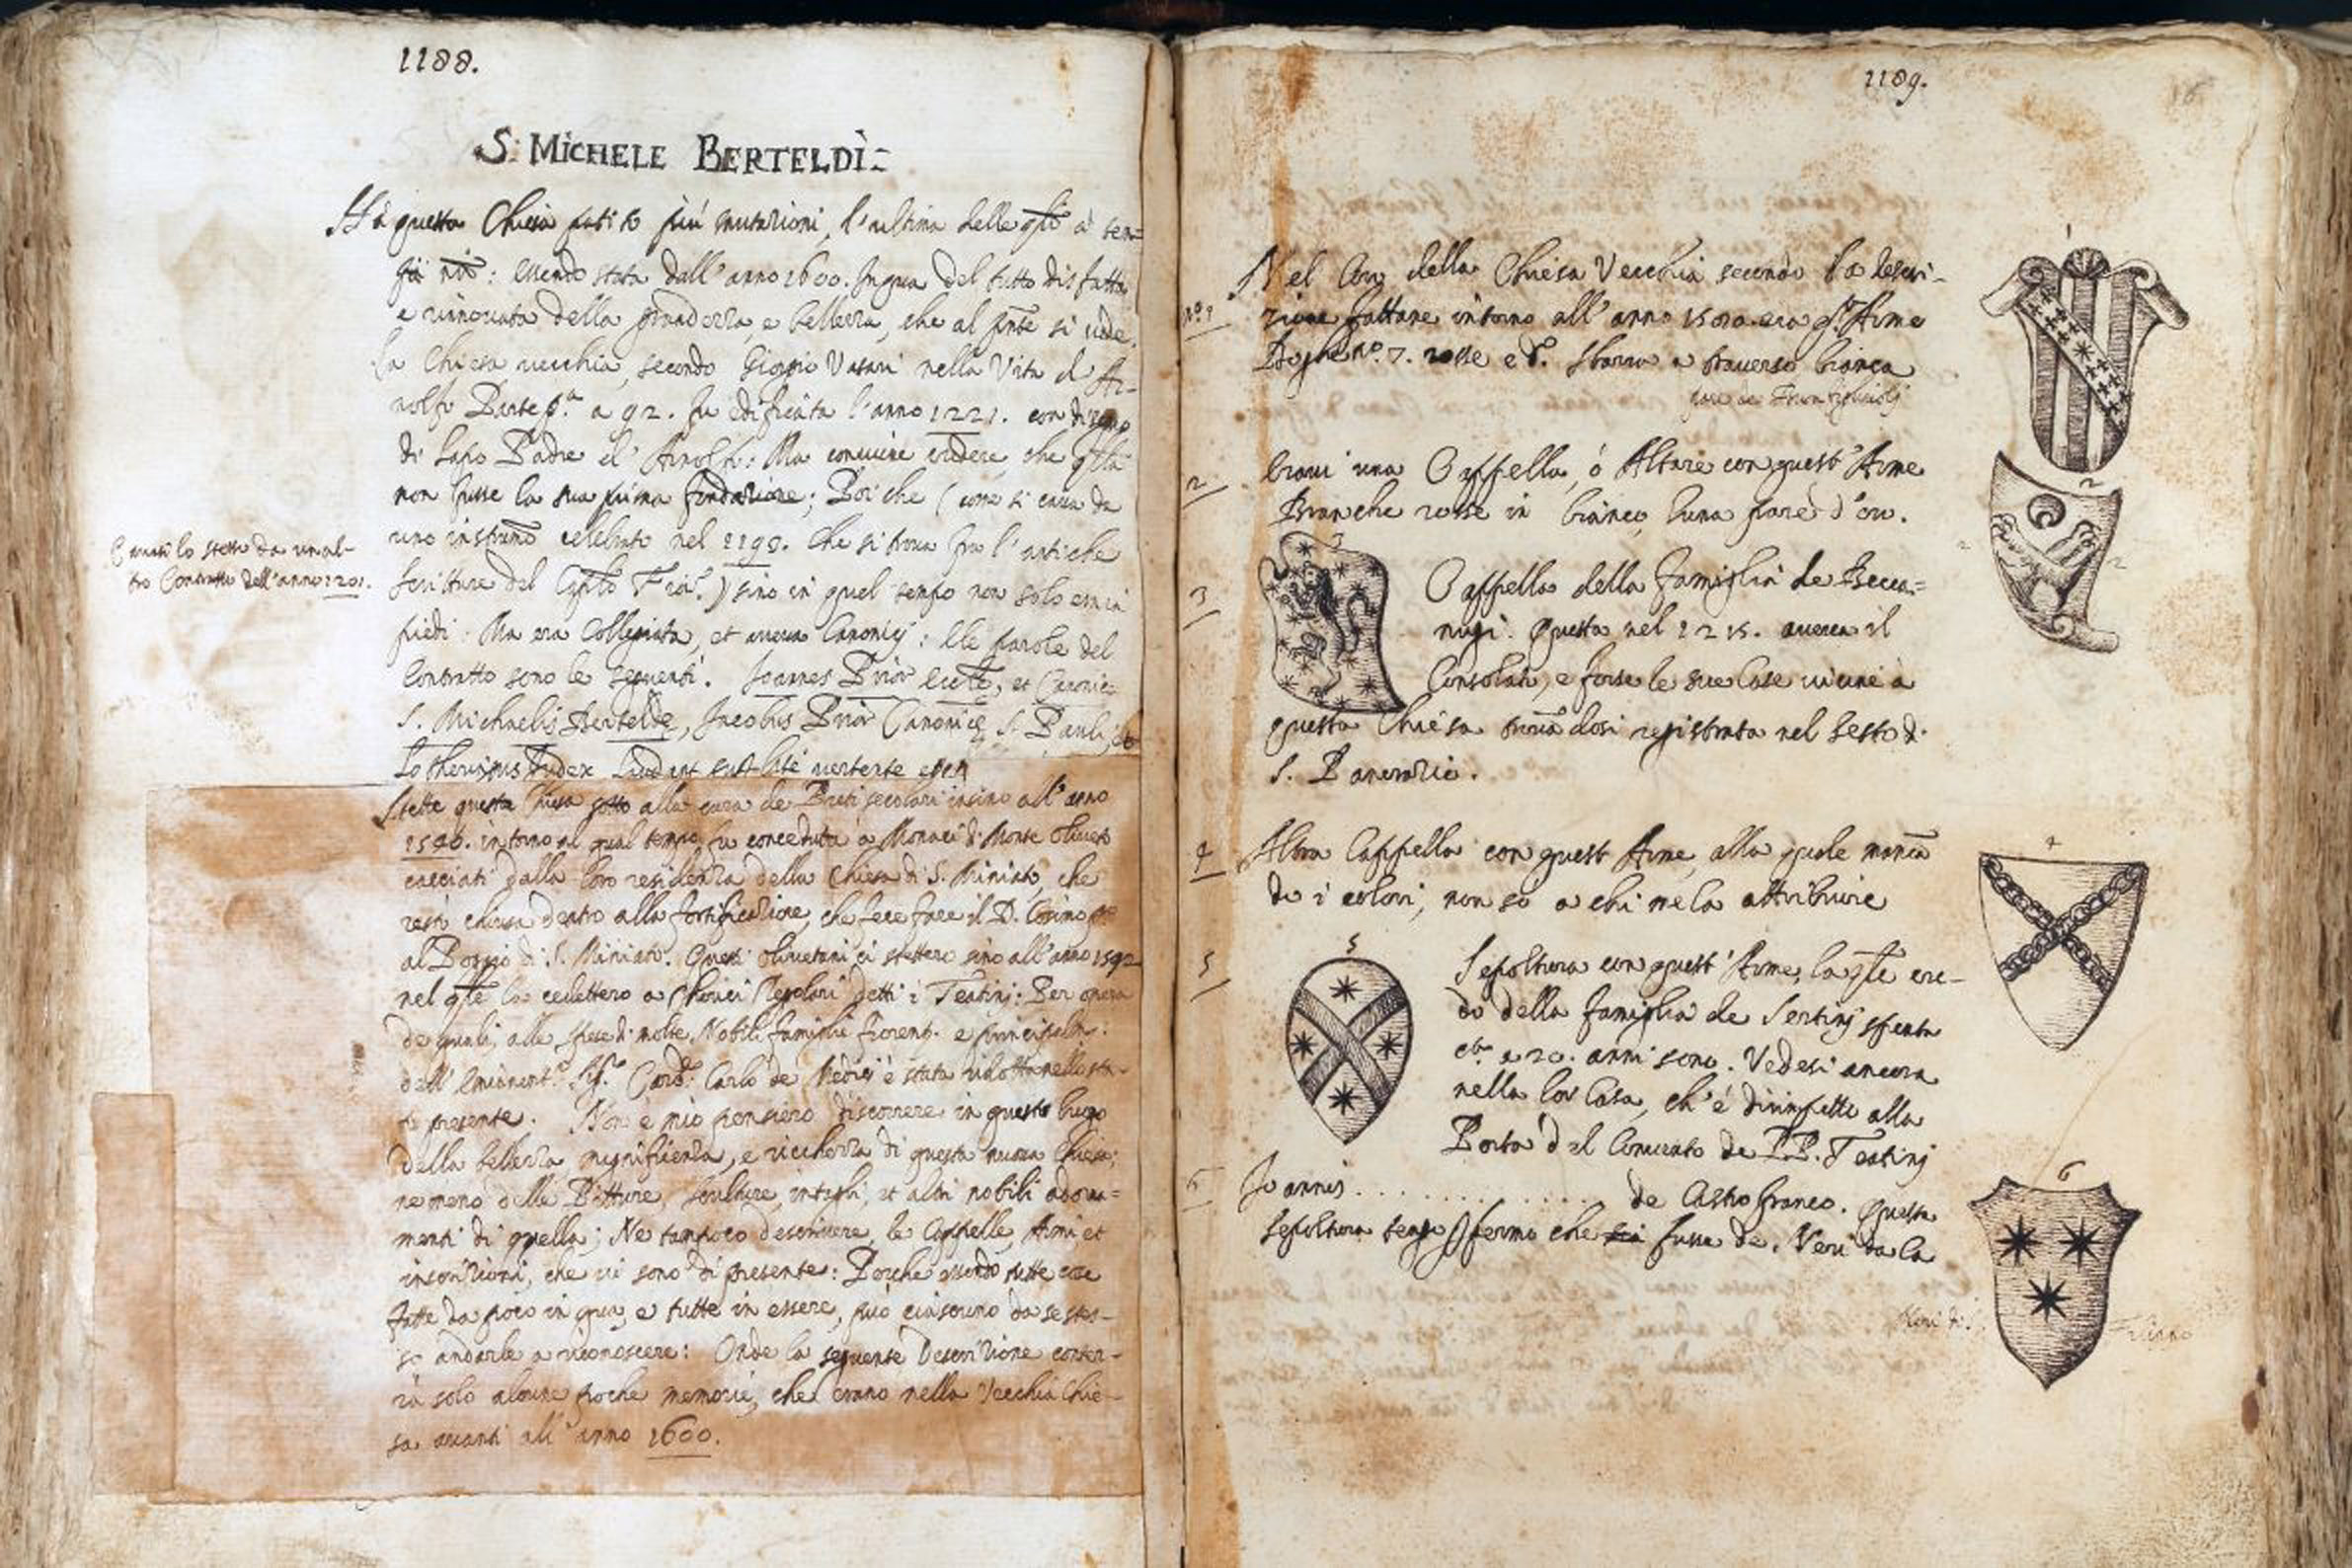 1188.
S. MICHELE BERTELDI
Hà questa Chiesa patito più mutazioni, l'ultima delle qli a' tem=
essendo stata dall'anno 1600. In qua del tutto disfatta
e rinnovata della grandezza, e bellezza, che al pnte si vede.
La Chiesa vecchia, secondo Giorgio Vasari nella Vita d'Ar-
nolfo Parte p.a a 92. fu edificata l'anno 1221. con disegno
di Lapo Padre d'Arnolfo: Ma conviene credere che qsta
non fusse la sua prima fondazione; Poi che (come si cava da
uno instrumo celebrato nel 1198. che si trova fra l'antiche
scritture del Caplo Fior.) sino in quel tempo non solo era in
piedi: Ma era Collegiata, et aveva Canonici: Le parole del
Contratto sono le seguenti. Joannes Prior Eccle, et Canonice
S. Michaelis Bertelde, Jacobus Prior Canonice S. Pauli, et
Iudex
Cavasi lo stesso da un al-
tro Contratto dell'anno 1201.
Stette questa Chiesa sotto alla cura de Preti secolari insino all'anno
intorno al qual tempo fu conceduta a Monaci di Monte Oliveto
cacciati dalla loro residenza della Chiesa di S. Miniato, che
restò chiusa dentro alla fortificazione, che fece fare il D. Cosimo
al Poggio di S. Miniato. Questi Olivetani ci stettero sino all'anno 1592
nel qle la cedettero a Cherici Regolari detti i Teatinj: Per opera
de quali, alle spese di molte Nobili famiglie fiorent. e principalm.
dall'Eminent.o Sig. Card. Carlo de Medici è stata ridotta nello sta-
to presente. Non è mio pensiero discorrere in questo luogo
della bellezza magnificenza, e ricchezza di questa nuova Chiesa;
ne meno delle Pitture, sculture, intagli, et altri nobili adorna=
menti di quella; Ne tampoco descrivere, le Cappelle, Armi et
inscrizioni, che vi sono di presente: Perche essendo tutte cose
fatte da poco in qua, e tutte in essere, può ciascuno da se stes-
so andarle a riconoscere: Onde la seguente Descrizione conter-
rà solo alcune poche memorie, che erano nella Vecchia Chie-
sa avanti all'anno 1600.
1189.
Nel Coro della Chiesa Vecchia secondo la descri-
N.o 1 zione fattane intorno all'anno era qt'Arme
Doghe N.o 7. rosse e d'. Sbarra a traverso bianca
1
2 Eravi una Cappella, ò Altare con quest'Arme
Branche rosse in bianco, Luna pare d'oro.
2
3
3 Cappella della famiglia de Becca=
nugi. Questa nel 1215. aveva il
Consolato, e forse le sue Case vicine a
questa Chiesa trovadosi registrata nel Sesto di
S. Pancrazio.
4 Altra Cappella con quest'Arme, alla quale manca
do i colori, non so a chi me la attribuire
4
5
5 Sepoltura con quest'Arme, la qle cre-
do della famiglia de Sertinj spenta
a 20. anni sono. Vedesi ancora
nella lor Casa, ch'è dirimpetto alla
Porta del Convento de PP. Teatinj
6 Joannis .............. de Castro franco. Questa
sepoltura tengo p fermo che fusse de. Neri da la
6